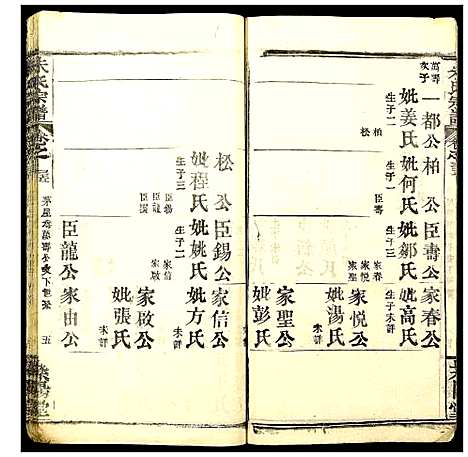 萬壽次子
一都公
妣姜氏
生子二
柏
松
柏公
妣何氏
生子一
臣壽
臣壽公
妣鄒氏
生子三
家春
家悅
家聖
家春公
妣高氏
生子未詳
家悅公
妣湯氏
未詳
家聖公
妣彭氏
未詳
松公
妣程氏
生子三
臣錫
臣龍
臣錫公
妣姚氏
生子二
家信
家啟
家信公
妣方氏
未詳
家啟公
妣張氏
未詳
臣龍公
家由公
朱氏宗譜
五